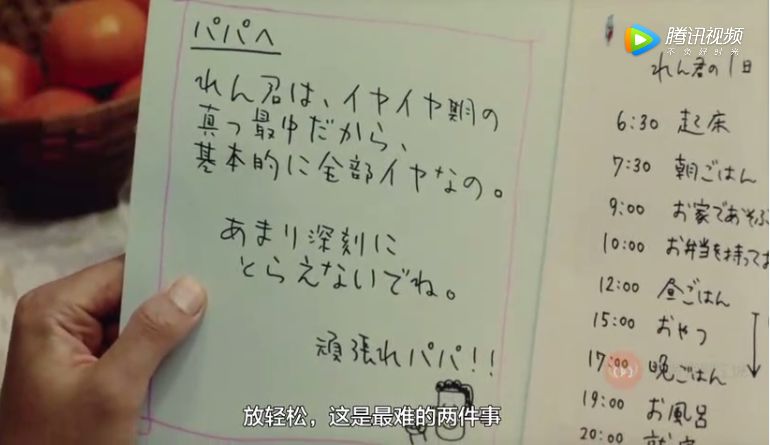 パパへ
れん君は、イヤイヤ期の
真っ最中だから、
基本的に全部イヤなの。
あまり深刻に
とらえないでね。
頑張れパパ!!
腾讯视频
不负好时光
れん君の1日
6:30 起床
7:30 朝ごはん
9:00 お家であそぶ
10:00 お弁当を持ってお
12:00 昼ごはん
15:00 おやつ
17:00 晩ごはん
19:00 お風呂
20:00
放轻松，这是最难的两件事